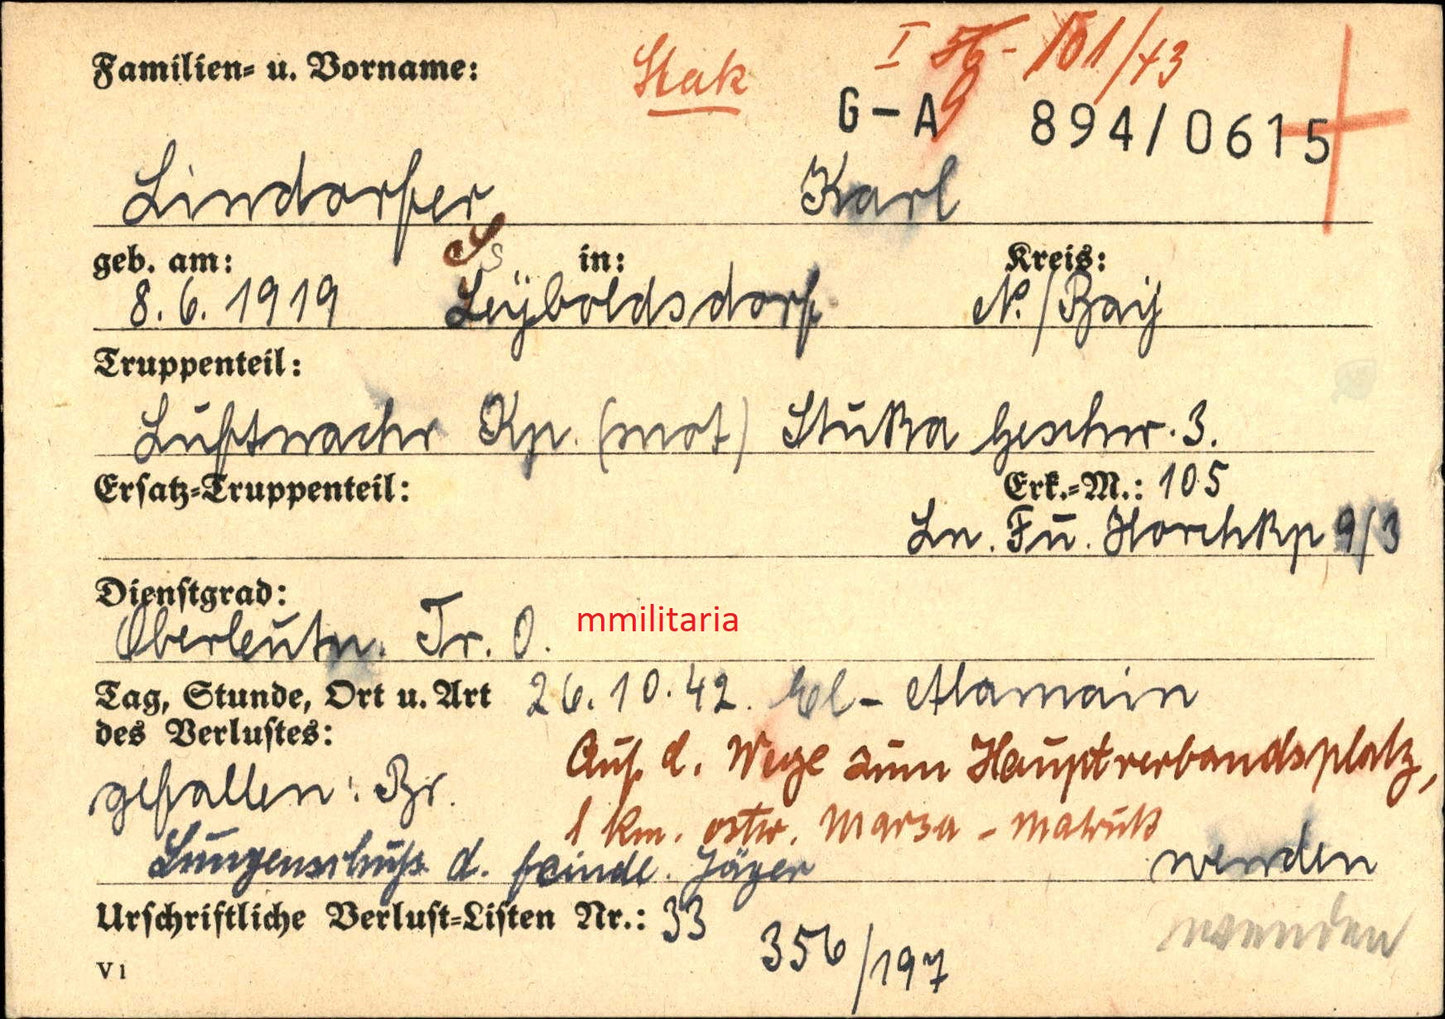 Familien- u. Vorname:
Stak
I 56 - 101/43
G-A 894/0615
Lindorfer Karl
geb. am: in: Kreis:
8.6.1919 Leÿboldsdorf N./Bay
s
Truppenteil:
Luftnachr Kp. (mot) Stuka Geschw. 3.
Ersatz-Truppenteil: Erk.-M.: 105
Ln. Fu. Horchkp 9/3
Dienstgrad:
Oberleutn. Tr. O.
mmilitaria
Tag, Stunde, Ort u. Art 26.10.42. El-Alamain
des Verlustes:
Auf d. Wege zum Hauptverbandsplatz,
gefallen: Br.
1 km. ostw. Marsa-Matruk
Lungenschuß d. feindl. Jäger wenden
Urschriftliche Verlust-Listen Nr.: 33
wenden
356/197
V 1